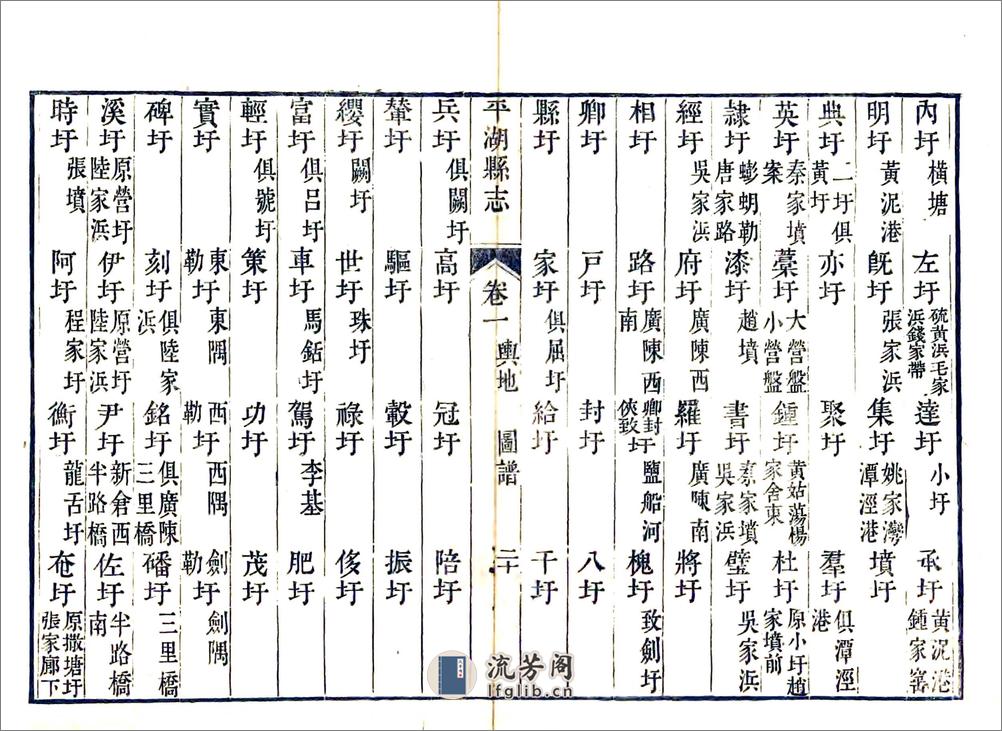 內圩 橫塘 左圩 硫黃浜毛家浜錢家帶 達圩 小圩 承圩 黃泥港鍾家窰
明圩 黃泥港 旣圩 張家浜 集圩 姚家灣潭涇港 墳圩
典圩 二圩俱黃圩 亦圩 聚圩 羣圩 俱潭涇港
英圩 秦家墳案 藁圩 大營盤小營盤 鍾圩 黃姑蕩楊家舍東 杜圩 原小圩趙家墳前
隸圩 蟛蚏勒唐家路 漆圩 趙墳 書圩 秦家墳吳家浜 壁圩 吳家浜
經圩 吳家浜 府圩 廣陳西 羅圩 廣陳南 將圩
相圩 路圩 廣陳西南 卿封俠致圩 鹽船河 槐圩 致劍圩
卿圩 戶圩 封圩 八圩
縣圩 家圩 俱屈圩 給圩 千圩
平湖縣志 卷一 輿地 圖譜 二十
兵圩 俱闕圩 高圩 冠圩 陪圩
輦圩 驅圩 轂圩 振圩
纓圩 闕圩 世圩 珠圩 祿圩 侈圩
富圩 俱呂圩 車圩 馬鉐圩 駕圩 李基 肥圩
輕圩 俱號圩 策圩 功圩 茂圩
實圩 東勒 東隅 西勒 西隅 劍勒 劍隅
碑圩 刻圩 俱陸家浜 銘圩 俱廣陳三里橋 磻圩 三里橋
溪圩 原營圩陸家浜 伊圩 原營圩陸家浜 尹圩 新倉西半路橋 佐圩 半路橋南
時圩 張墳 阿圩 程家圩 衡圩 龍舌圩 奄圩 原撒塘圩張家廊下
流芳阁
lfglib.cn